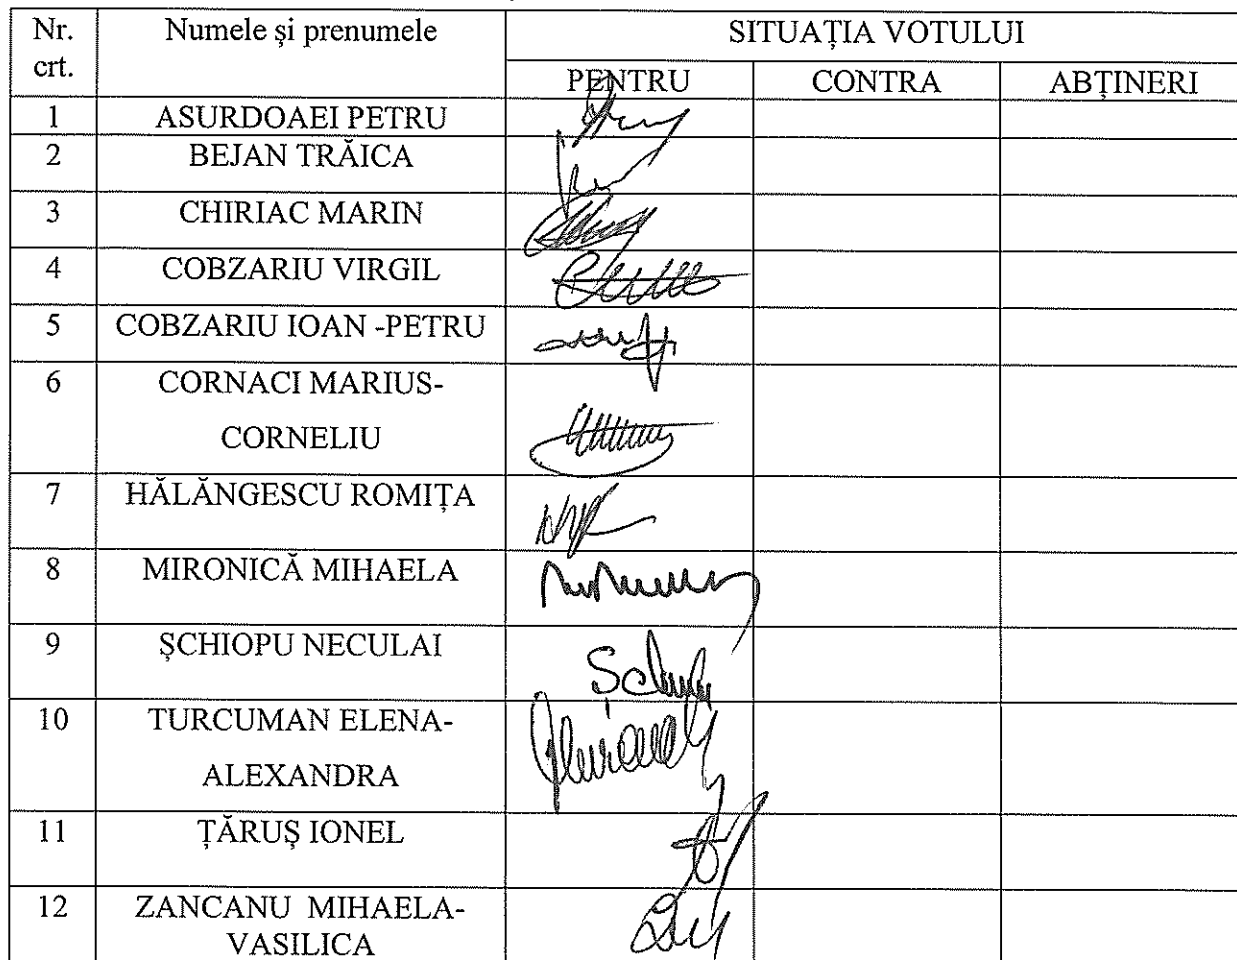 Nr. Numele și prenumele SITUAȚIA VOTULUI
crt. PENTRU CONTRA ABȚINERI
1 ASURDOAEI PETRU
2 BEJAN TRĂICA
3 CHIRIAC MARIN
4 COBZARIU VIRGIL
5 COBZARIU IOAN -PETRU
6 CORNACI MARIUS-
CORNELIU
7 HĂLĂNGESCU ROMIȚA
8 MIRONICĂ MIHAELA
9 ȘCHIOPU NECULAI
10 TURCUMAN ELENA-
ALEXANDRA
11 ȚĂRUȘ IONEL
12 ZANCANU MIHAELA-
VASILICA